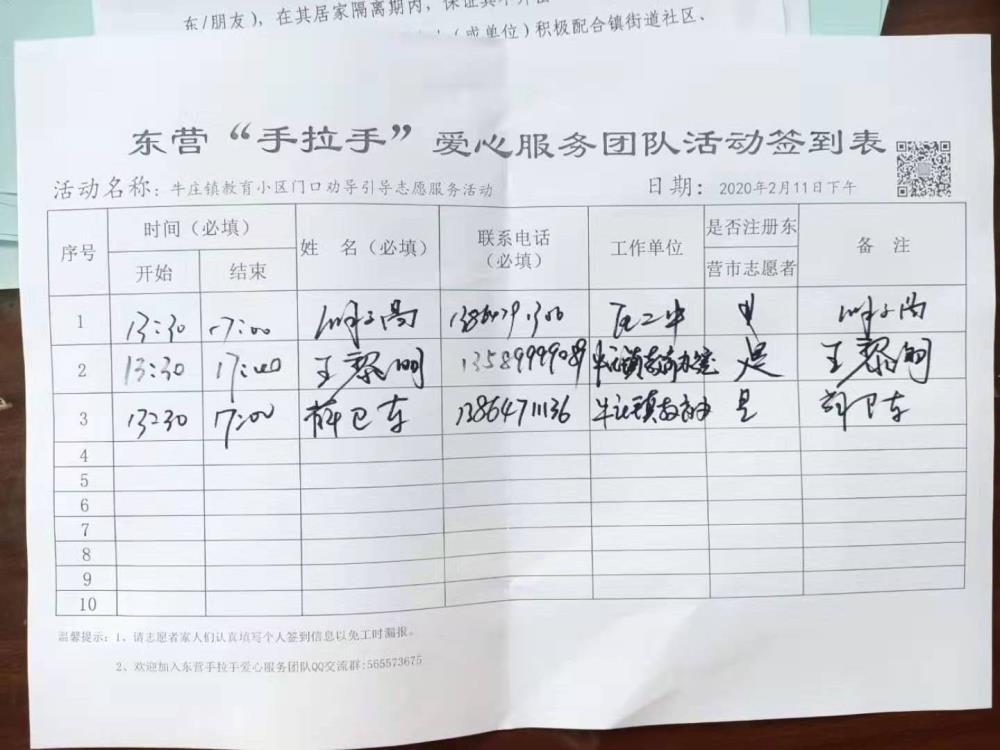 东/朋友），在其居家隔离期内，保证其不外出
（或单位）积极配合镇街道社区、
东营“手拉手”爱心服务团队活动签到表
活动名称：牛庄镇教育小区门口劝导引导志愿服务活动 日期：2020年2月11日下午
序号 时间（必填） 开始 结束 姓 名（必填） 联系电话（必填） 工作单位 是否注册东营市志愿者 备 注
1 13:30 17:00 是
2 13:30 17:00 王黎明 13589999089 牛庄镇教育办室 是 王黎明
3 13:30 17:00 薛卫东 13864711136 牛庄镇教育办 是 薛卫东
4
5
6
7
8
9
10
温馨提示：1、请志愿者家人们认真填写个人签到信息以免工时漏报。
2、欢迎加入东营手拉手爱心服务团队QQ交流群:565573675